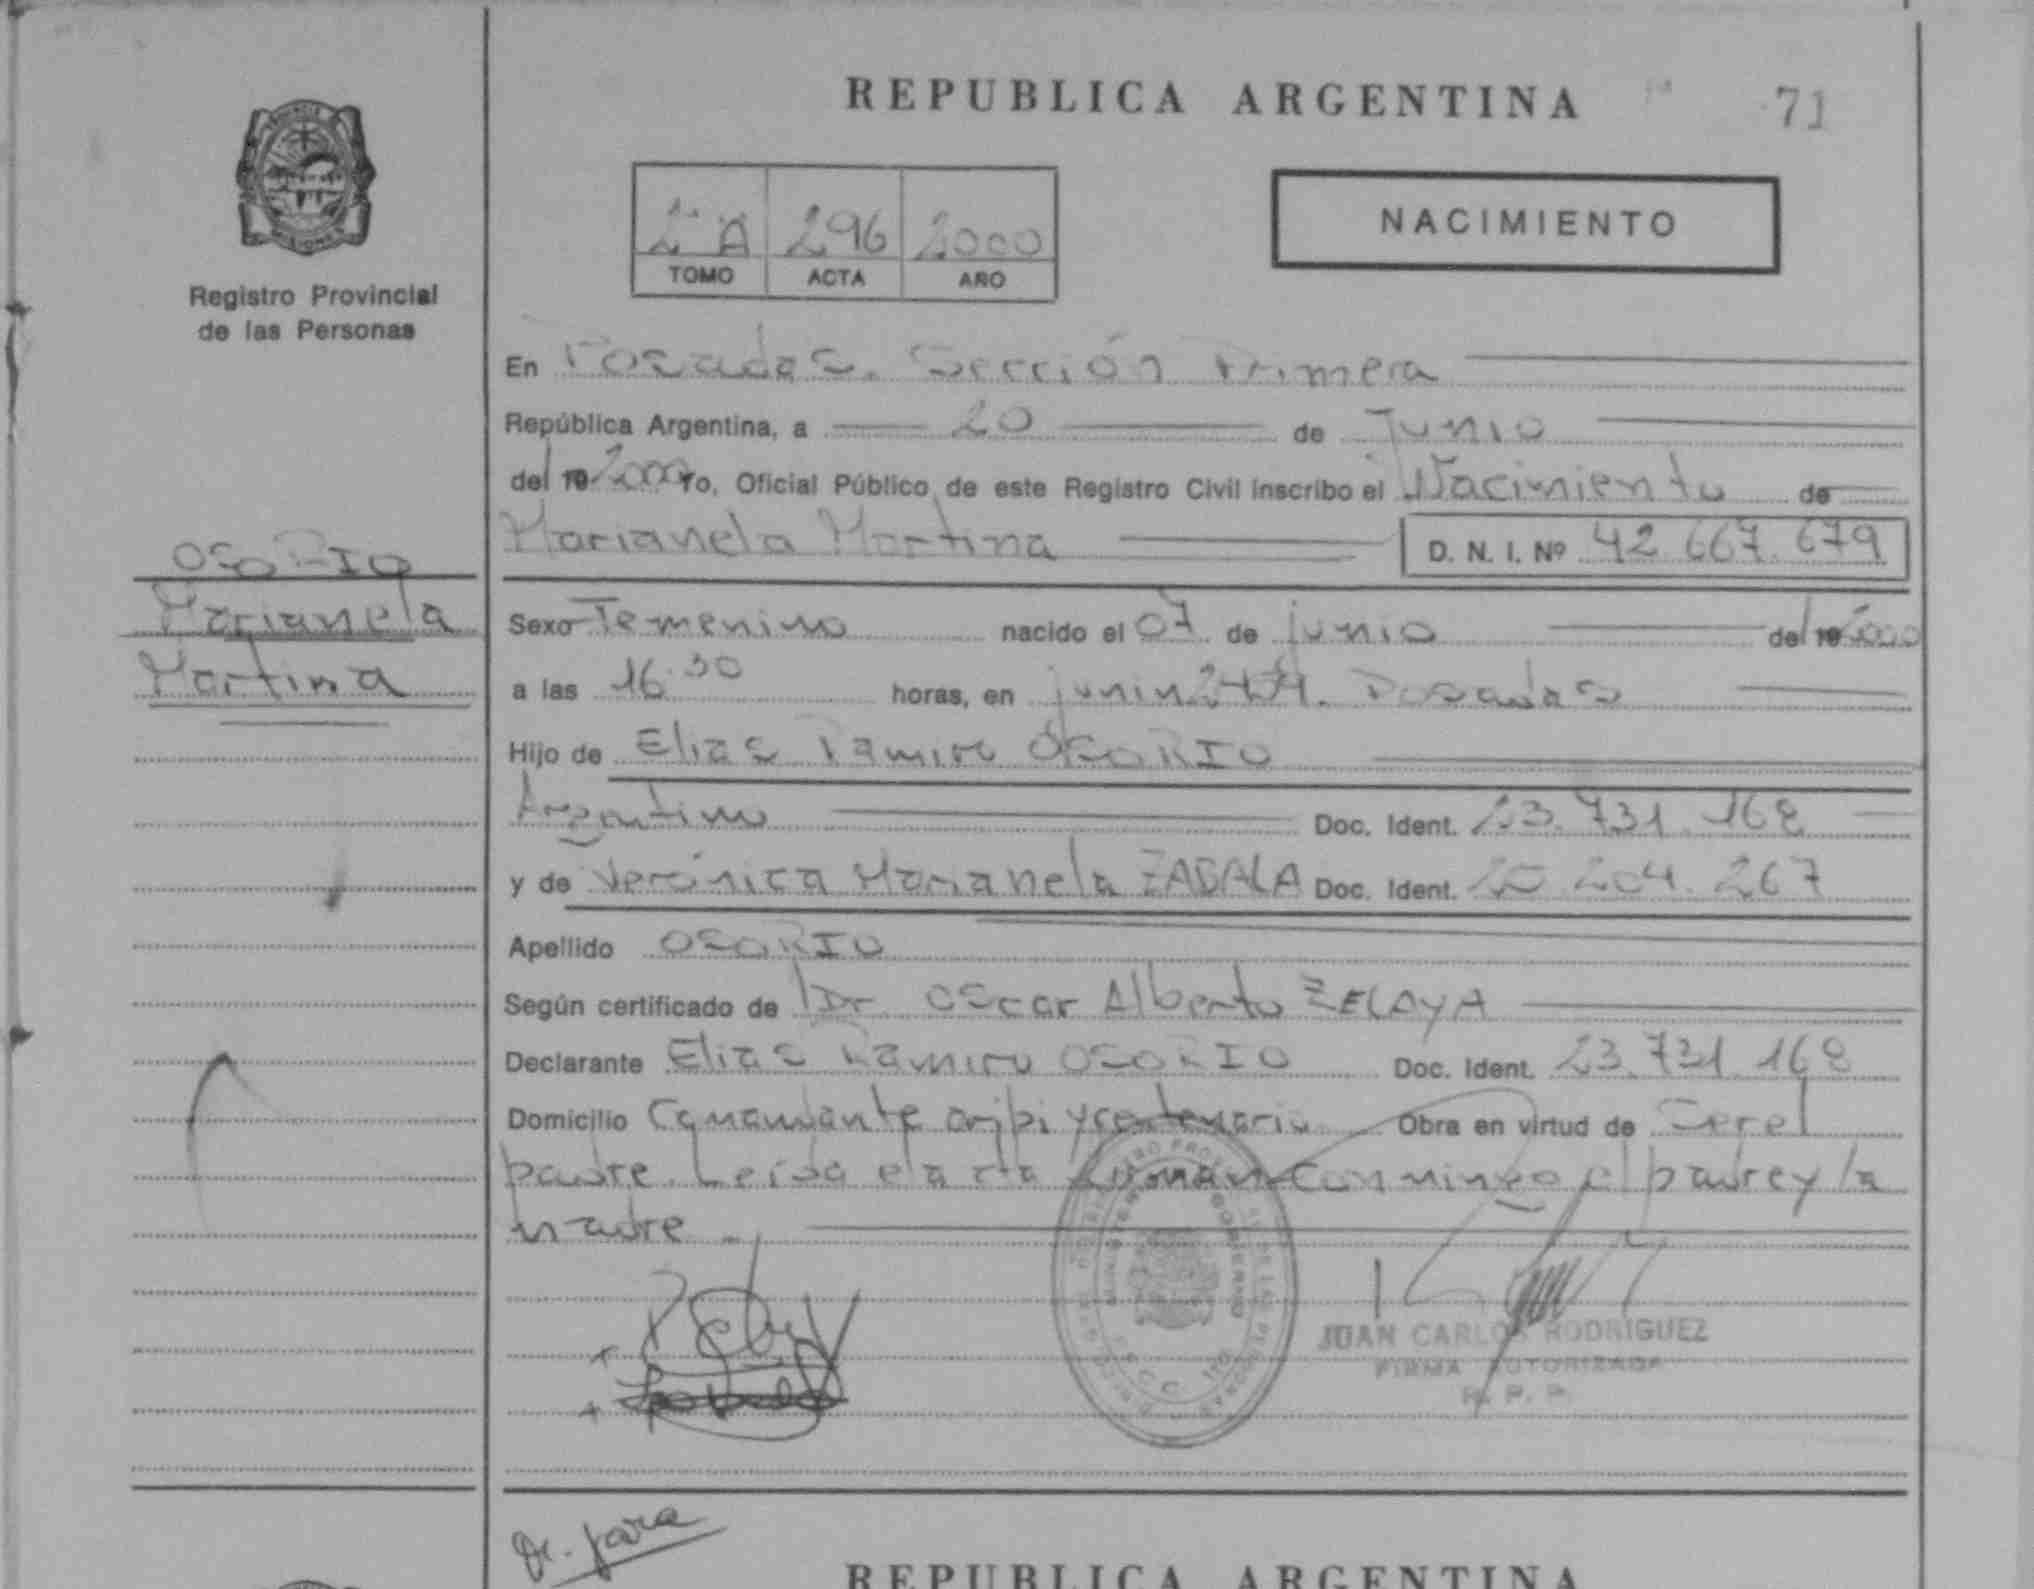 REPUBLICA ARGENTINA
71
Registro Provincial
de las Personas
2º A 296 2000
TOMO ACTA AÑO
NACIMIENTO
En Posadas. Sección Primera
República Argentina, a 20 de Junio
del 19 2000 Yo, Oficial Público de este Registro Civil inscribo el Nacimiento de
Marianela Martina D. N. I. Nº 42.667.679
OSORIO
Marianela
Martina
Sexo Femenino nacido el 07 de junio del 19 2000
a las 16.30 horas, en junin 2474. Posadas
Hijo de Elias Ramiro OSORIO
Argentino Doc. Ident. 23.731.168
y de Verónica Marianela ZABALA Doc. Ident. 20.204.267
Apellido OSORIO
Según certificado de Dr Oscar Alberto ZELAYA
Declarante Elias Ramiro OSORIO Doc. Ident. 23.731.168
Domicilio Comandante y centenario Obra en virtud de Ser el
padre. Leida el acta firman conmigo el padre y la
madre.
JUAN CARLOS RODRIGUEZ
FIRMA AUTORIZADA
R. P. P.
REPUBLICA ARGENTINA